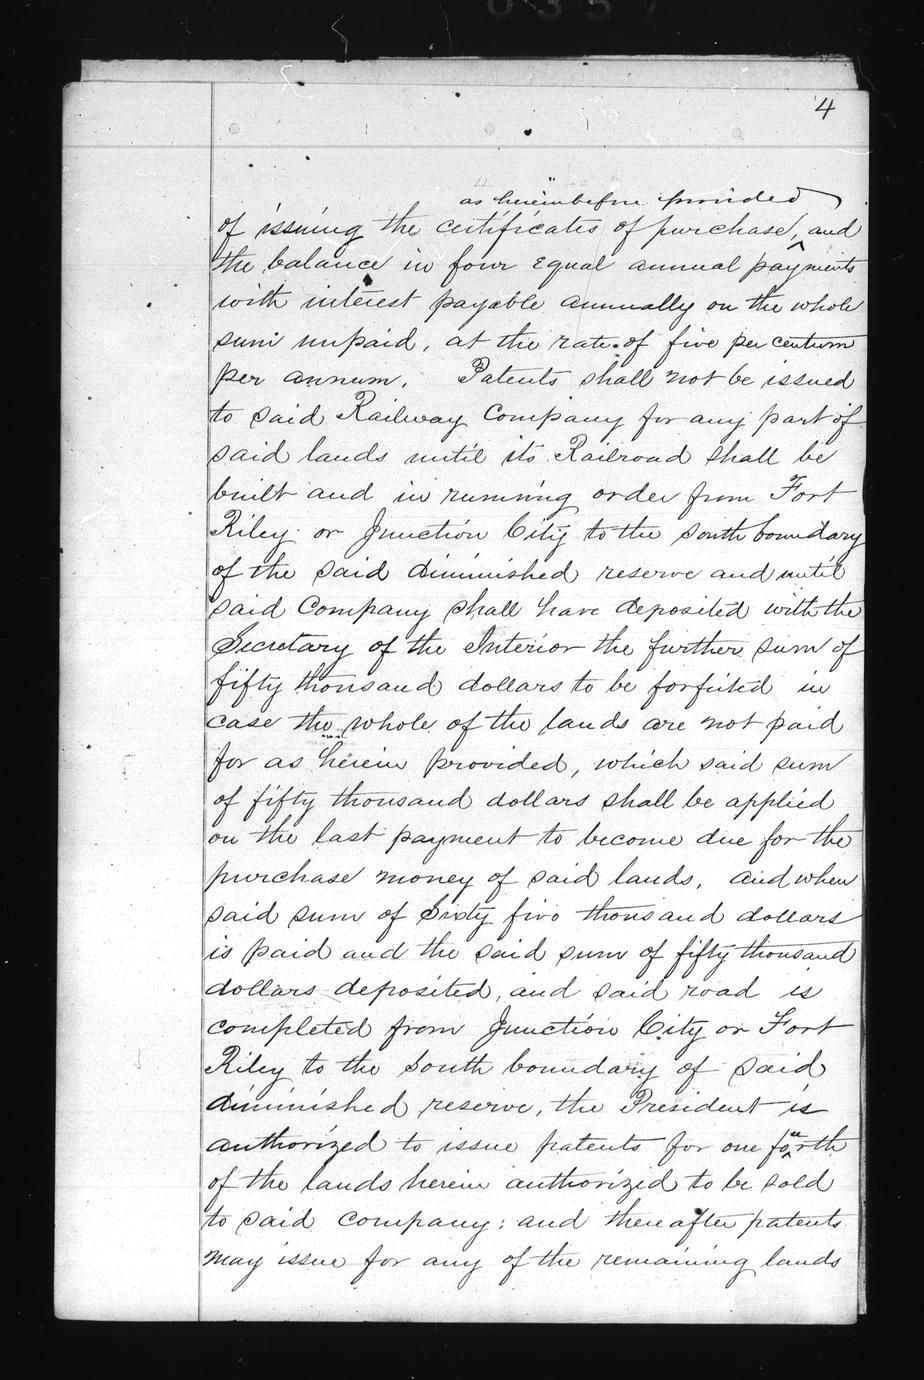 4
as hereinbefore provided
of issuing the certificates of purchase, and
the balance in four equal annual payments
with interest payable annually on the whole
sum unpaid, at the rate of five per centum
per annum. Patents shall not be issued
to said Railway Company for any part of
said lands until its Railroad shall be
built and in running order from Fort
Riley or Junction City to the south boundary
of the said diminished reserve and until
said Company shall have deposited with the
Secretary of the Interior the further sum of
fifty thousand dollars to be forfeited in
case the whole of the lands are not paid
for as herein provided, which said sum
of fifty thousand dollars shall be applied
on the last payment to become due for the
purchase money of said lands. and when
said sum of Sixty five thousand dollars
is paid and the said sum of fifty thousand
dollars deposited, and said road is
completed from Junction City or Fort
Riley to the South boundary of said
diminished reserve, the President is
authorized to issue patents for one fourth
of the lands herein authorized to be sold
to said company; and thereafter patents
may issue for any of the remaining lands